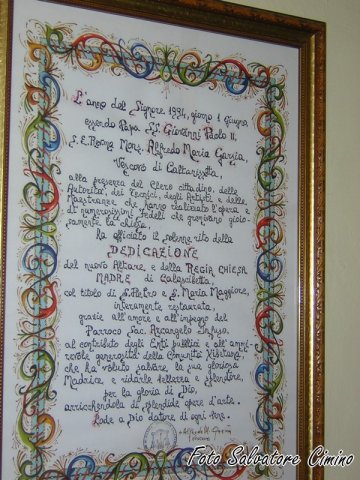 L'anno del Signore 1994, giorno 1 giugno,
essendo Papa SS. Giovanni Paolo II,
S.E. Rev.ma Mons. Alfredo Maria Garsia,
Vescovo di Caltanissetta,
alla presenza del Clero cittadino, delle
Autorità, dei Tecnici, degli Artisti e delle
Maestranze che hanno realizzato l'opera e
di numerosissimi Fedeli che gremivano gioio-
samente la chiesa,
ha officiato il solenne rito della
DEDICAZIONE
del nuovo Altare, e della REGIA CHIESA
MADRE di Calascibetta,
col titolo di S. Pietro e S. Maria Maggiore,
interamente restaurata,
grazie all'amore e all'impegno del
Parroco Sac. Arcangelo
al contributo degli Enti pubblici e all'ammi-
revole generosità della Comunità Xibetana,
che ha voluto salvare la sua gloriosa
Madrice e ridarle bellezza e splendore,
per la gloria di Dio,
arricchendola di splendide opere d'arte.
Lode a Dio datore di ogni bene.
Foto Salvatore Cimino